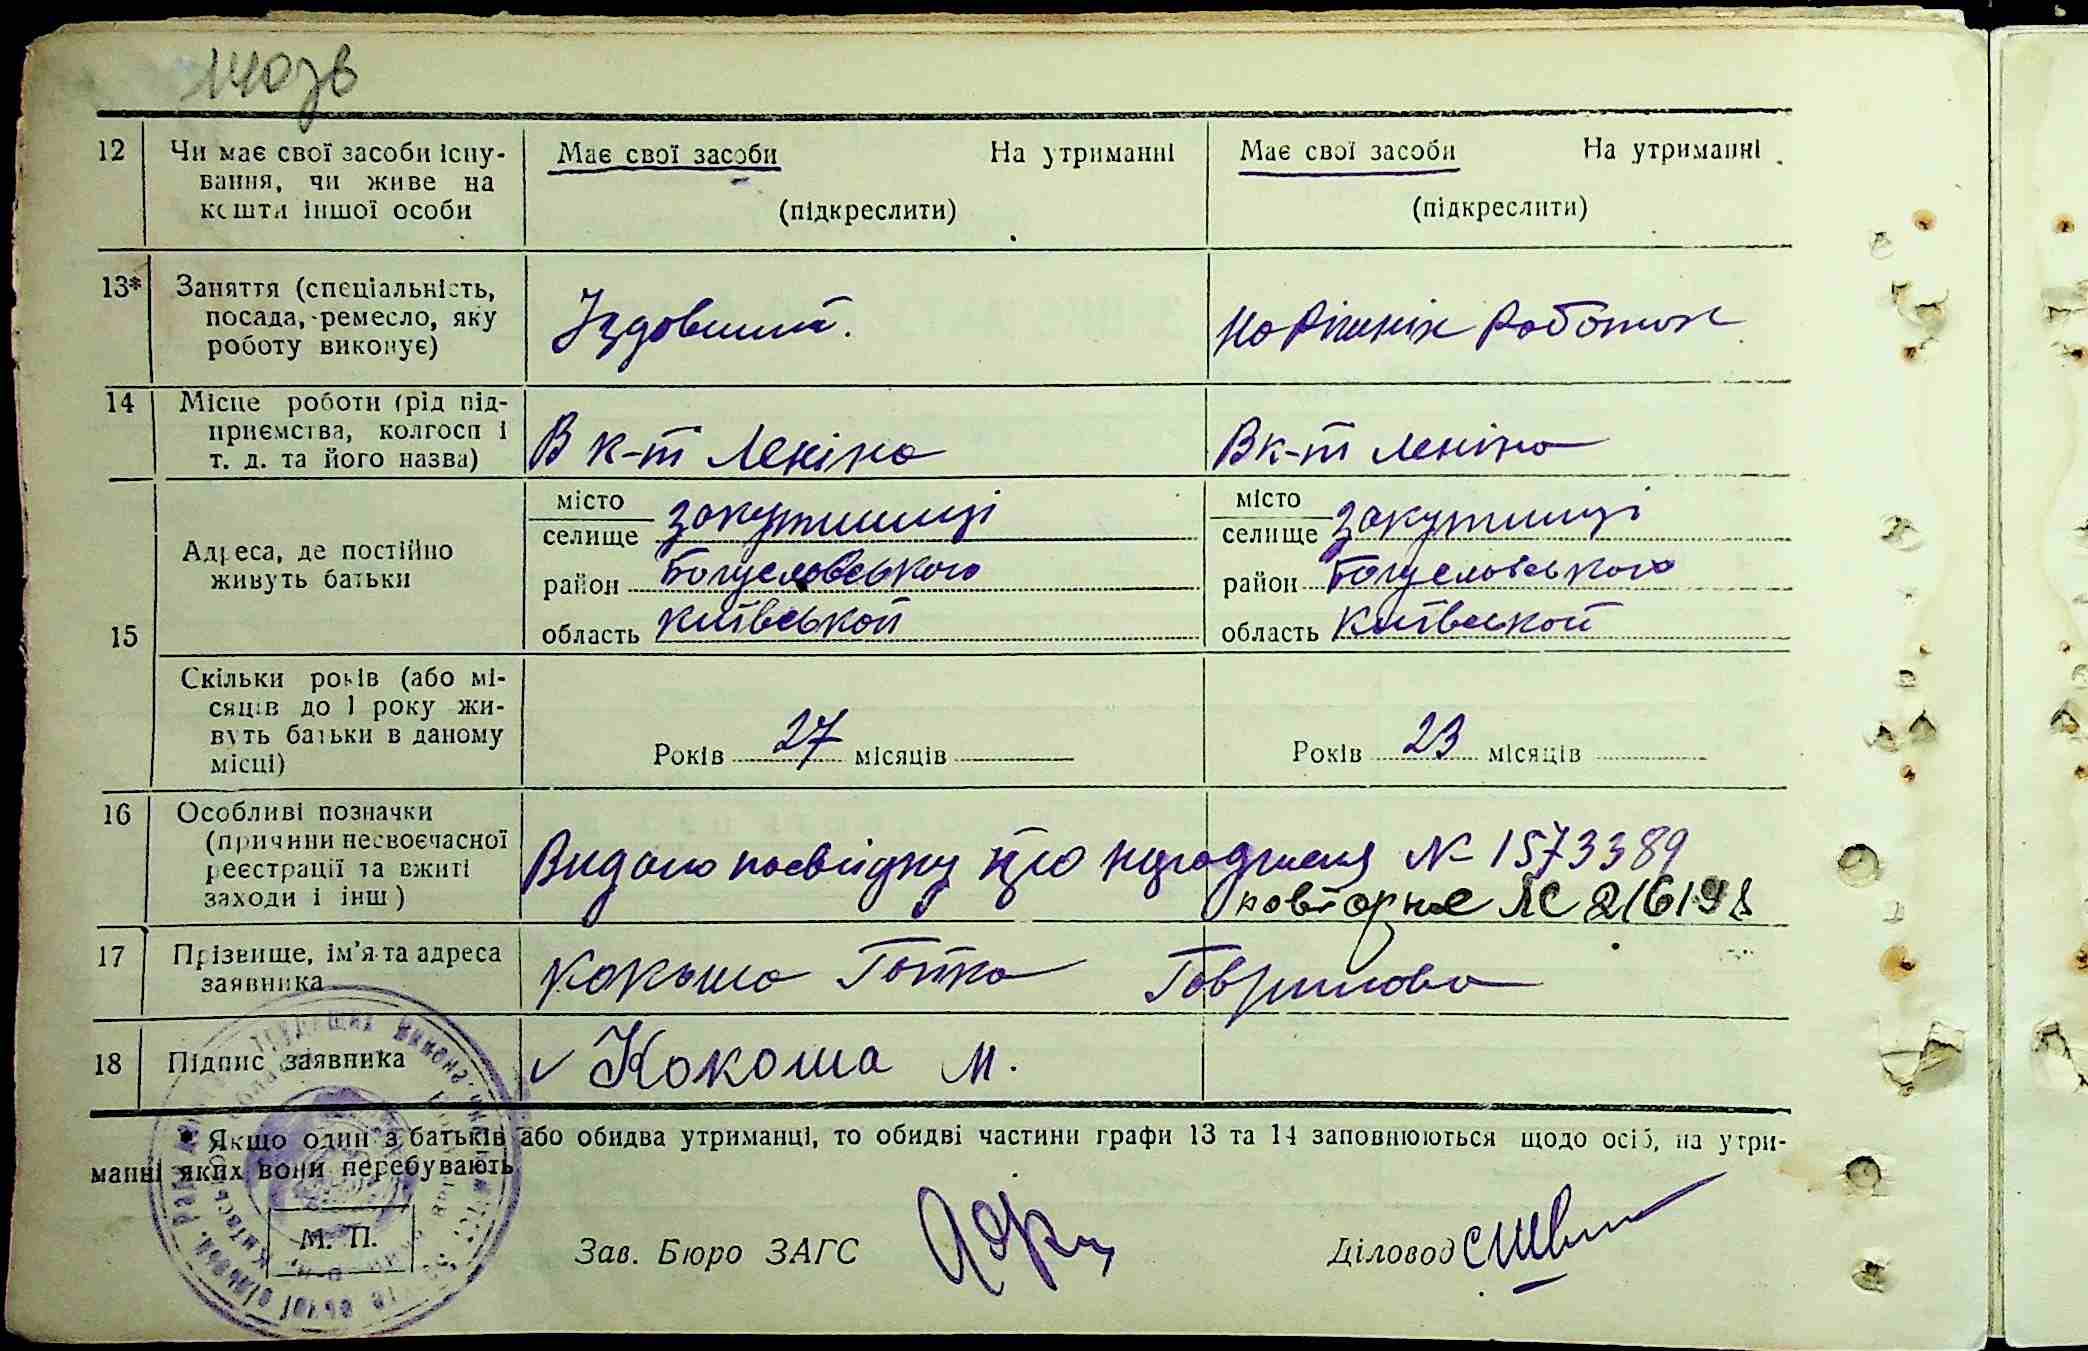 140зв
12 Чи має свої засоби існу- Має свої засоби На утриманні Має свої засоби На утриманні
вання, чи живе на
кошти іншої особи (підкреслити) (підкреслити)
13* Заняття (спеціальність,
посада, ремесло, яку Їздовший. На Різних Роботах
роботу виконує)
14 Місце роботи (рід під-
приємства, колгосп і В к-т Леніна В к-т Леніна
т. д. та його назва)
15
Адреса, де постійно
живуть батьки
місто
селище закутинці
район Богуславського
область Київської
місто
селище закутинці
район Богуславського
область Київської
Скільки років (або мі-
сяців до 1 року жи-
вуть батьки в даному
місці)
Років 27 місяців Років 23 місяців
16 Особливі позначки
(причини несвоєчасної
реєстрації та вжиті
заходи і інш)
Видано посвідку про народження № 1573389
повторне
17 Прізвище, ім'я та адреса
заявника
Кокоша Гапка Гаврилова
18 Підпис заявника Кокоша М.
* Якщо один з батьків або обидва утриманці, то обидві частини графи 13 та 14 заповнюються щодо осіб, на утри-
манні яких вони перебувають
М. П.
Зав. Бюро ЗАГС Діловод